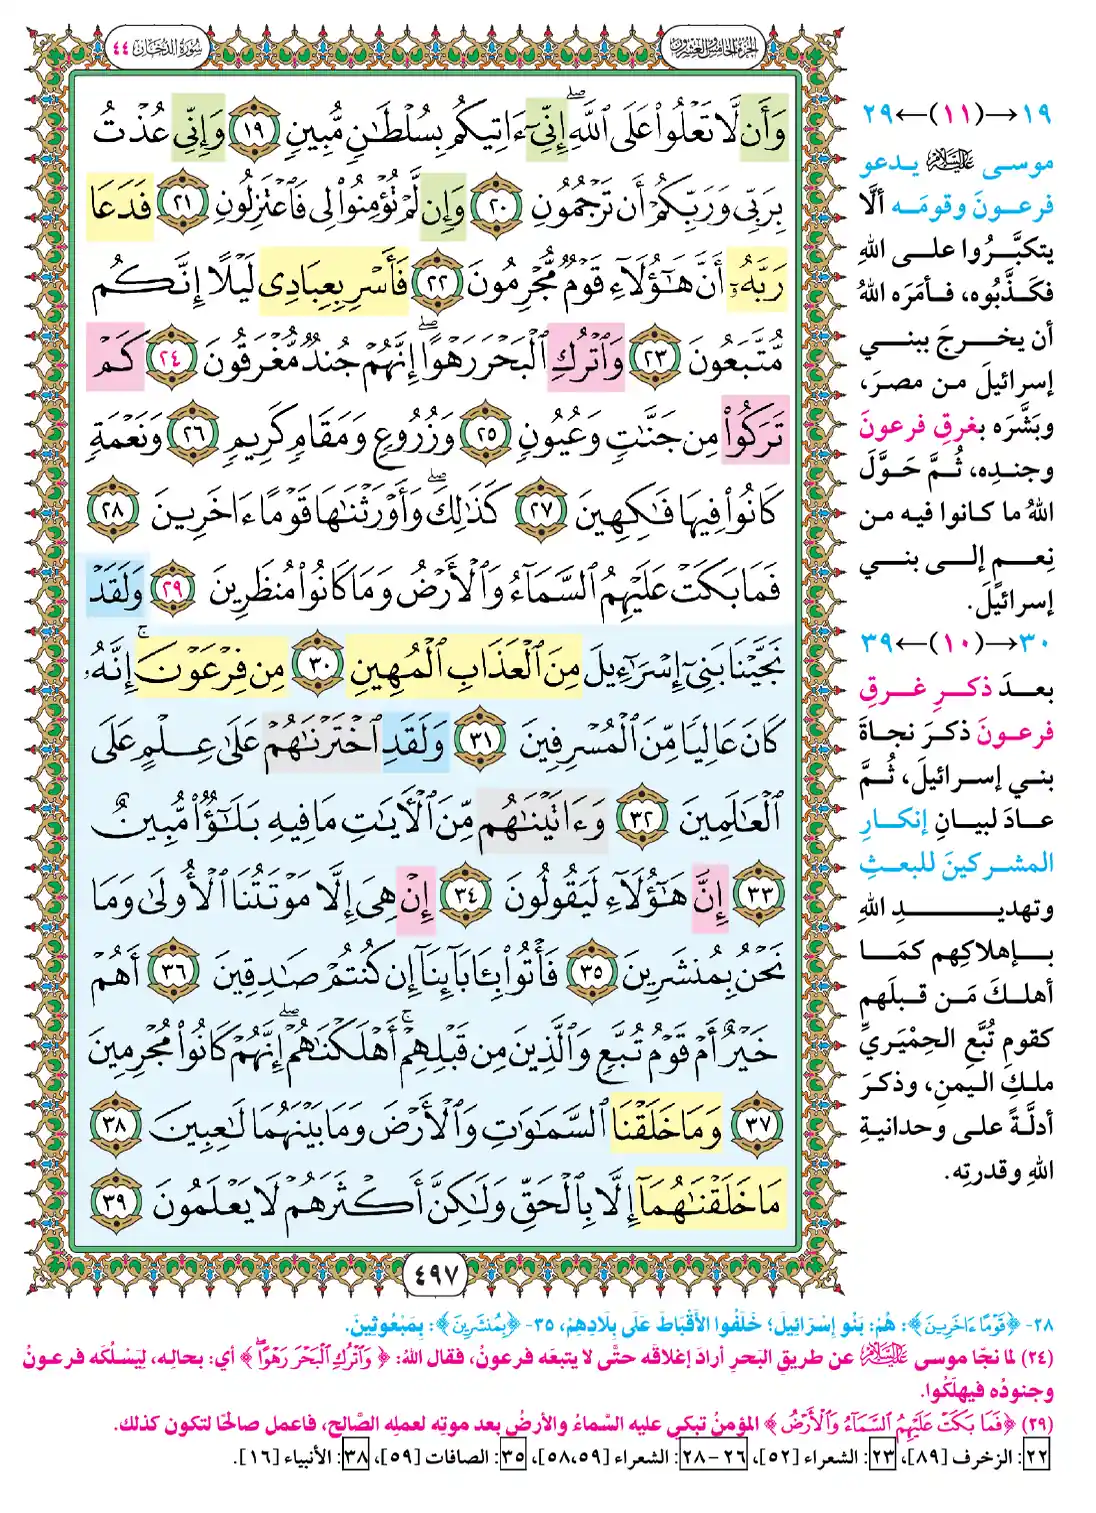 سُورَةُ الدُّخَانِ ٤٤
الجزء الخامس والعشرون
وَأَن لَّا تَعۡلُواْ عَلَى ٱللَّهِۖ إِنِّيٓ ءَاتِيكُم بِسُلۡطَٰنٖ مُّبِينٖ ١٩ وَإِنِّي عُذۡتُ
بِرَبِّي وَرَبِّكُمۡ أَن تَرۡجُمُونِ ٢٠ وَإِن لَّمۡ تُؤۡمِنُواْ لِي فَٱعۡتَزِلُونِ ٢١ فَدَعَا
رَبَّهُۥٓ أَنَّ هَٰٓؤُلَآءِ قَوۡمٞ مُّجۡرِمُونَ ٢٢ فَأَسۡرِ بِعِبَادِي لَيۡلًا إِنَّكُم
مُّتَّبَعُونَ ٢٣ وَٱتۡرُكِ ٱلۡبَحۡرَ رَهۡوًاۖ إِنَّهُمۡ جُندٞ مُّغۡرَقُونَ ٢٤ كَمۡ
تَرَكُواْ مِن جَنَّٰتٖ وَعُيُونٖ ٢٥ وَزُرُوعٖ وَمَقَامٖ كَرِيمٖ ٢٦ وَنَعۡمَةٖ
كَانُواْ فِيهَا فَٰكِهِينَ ٢٧ كَذَٰلِكَۖ وَأَوۡرَثۡنَٰهَا قَوۡمًا ءَاخَرِينَ ٢٨
فَمَا بَكَتۡ عَلَيۡهِمُ ٱلسَّمَآءُ وَٱلۡأَرۡضُ وَمَا كَانُواْ مُنظَرِينَ ٢٩ وَلَقَدۡ
نَجَّيۡنَا بَنِيٓ إِسۡرَٰٓءِيلَ مِنَ ٱلۡعَذَابِ ٱلۡمُهِينِ ٣٠ مِن فِرۡعَوۡنَۚ إِنَّهُۥ
كَانَ عَالِيٗا مِّنَ ٱلۡمُسۡرِفِينَ ٣١ وَلَقَدِ ٱخۡتَرۡنَٰهُمۡ عَلَىٰ عِلۡمٍ عَلَى
ٱلۡعَٰلَمِينَ ٣٢ وَءَاتَيۡنَٰهُم مِّنَ ٱلۡأٓيَٰتِ مَا فِيهِ بَلَٰٓؤٞاْ مُّبِينٌ
٣٣ إِنَّ هَٰٓؤُلَآءِ لَيَقُولُونَ ٣٤ إِنۡ هِيَ إِلَّا مَوۡتَتُنَا ٱلۡأُولَىٰ وَمَا
نَحۡنُ بِمُنشَرِينَ ٣٥ فَأۡتُواْ بِـَٔابَآئِنَآ إِن كُنتُمۡ صَٰدِقِينَ ٣٦ أَهُمۡ
خَيۡرٌ أَمۡ قَوۡمُ تُبَّعٖ وَٱلَّذِينَ مِن قَبۡلِهِمۡۚ أَهۡلَكۡنَٰهُمۡۖ إِنَّهُمۡ كَانُواْ مُجۡرِمِينَ
٣٧ وَمَا خَلَقۡنَا ٱلسَّمَٰوَٰتِ وَٱلۡأَرۡضَ وَمَا بَيۡنَهُمَا لَٰعِبِينَ ٣٨
مَا خَلَقۡنَٰهُمَآ إِلَّا بِٱلۡحَقِّ وَلَٰكِنَّ أَكۡثَرَهُمۡ لَا يَعۡلَمُونَ ٣٩
٤٩٧
١٩→(١١)←٢٩
موسى عَلَيْهِ السَّلَامُ يدعو
فرعونَ وقومَه ألَّا
يتكبَّرُوا على اللهِ
فكذَّبُوه، فأمَرَه اللهُ
أن يخرجَ ببني
إسرائيلَ من مصرَ،
وبَشَّرَه بغرقِ فرعونَ
وجندِه، ثُمَّ حَوَّلَ
اللهُ ما كانوا فيه من
نِعمٍ إلى بني
إسرائيلَ.
٣٠→(١٠)←٣٩
بعدَ ذكرِ غرقِ
فرعونَ ذكرَ نجاةَ
بني إسرائيلَ، ثُمَّ
عادَ لبيانِ إنكارِ
المشركينَ للبعثِ
وتهديدِ اللهِ
بإهلاكِهم كمَا
أهلكَ مَن قبلَهم
كقومِ تُبَّعٍ الحِمْيَريِّ
ملكِ اليمنِ، وذكرَ
أدلَّةً على وحدانيةِ
اللهِ وقدرتِه.
٢٨- ﴿قَوۡمًا ءَاخَرِينَ﴾: هُمْ: بَنُو إِسْرَائِيلَ؛ خَلَفُوا الأَقْبَاطَ عَلَى بِلَادِهِمْ، ٣٥- ﴿بِمُنشَرِينَ﴾: بِمَبْعُوثِينَ.
(٢٤) لما نجّا موسى عَلَيْهِ السَّلَامُ عن طريقِ البَحرِ أرادَ إغلاقَه حتَّى لا يتبعَه فرعونُ، فقال اللهُ: ﴿وَٱتۡرُكِ ٱلۡبَحۡرَ رَهۡوًاۖ﴾ أي: بحالِه، ليَسْلُكَه فرعونُ
وجنودُه فيهلَكُوا.
(٢٩) ﴿فَمَا بَكَتۡ عَلَيۡهِمُ ٱلسَّمَآءُ وَٱلۡأَرۡضُ﴾ المؤمنُ تبكي عليه السَّماءُ والأرضُ بعد موتِه لعملِه الصَّالحِ، فاعمل صالحًا لتكون كذلك.
٢٢: الزخرف [٨٩]، ٢٣: الشعراء [٥٢]، ٢٦-٢٨: الشعراء [٥٨،٥٩]، ٣٥: الصافات [٥٩]، ٣٨: الأنبياء [١٦].